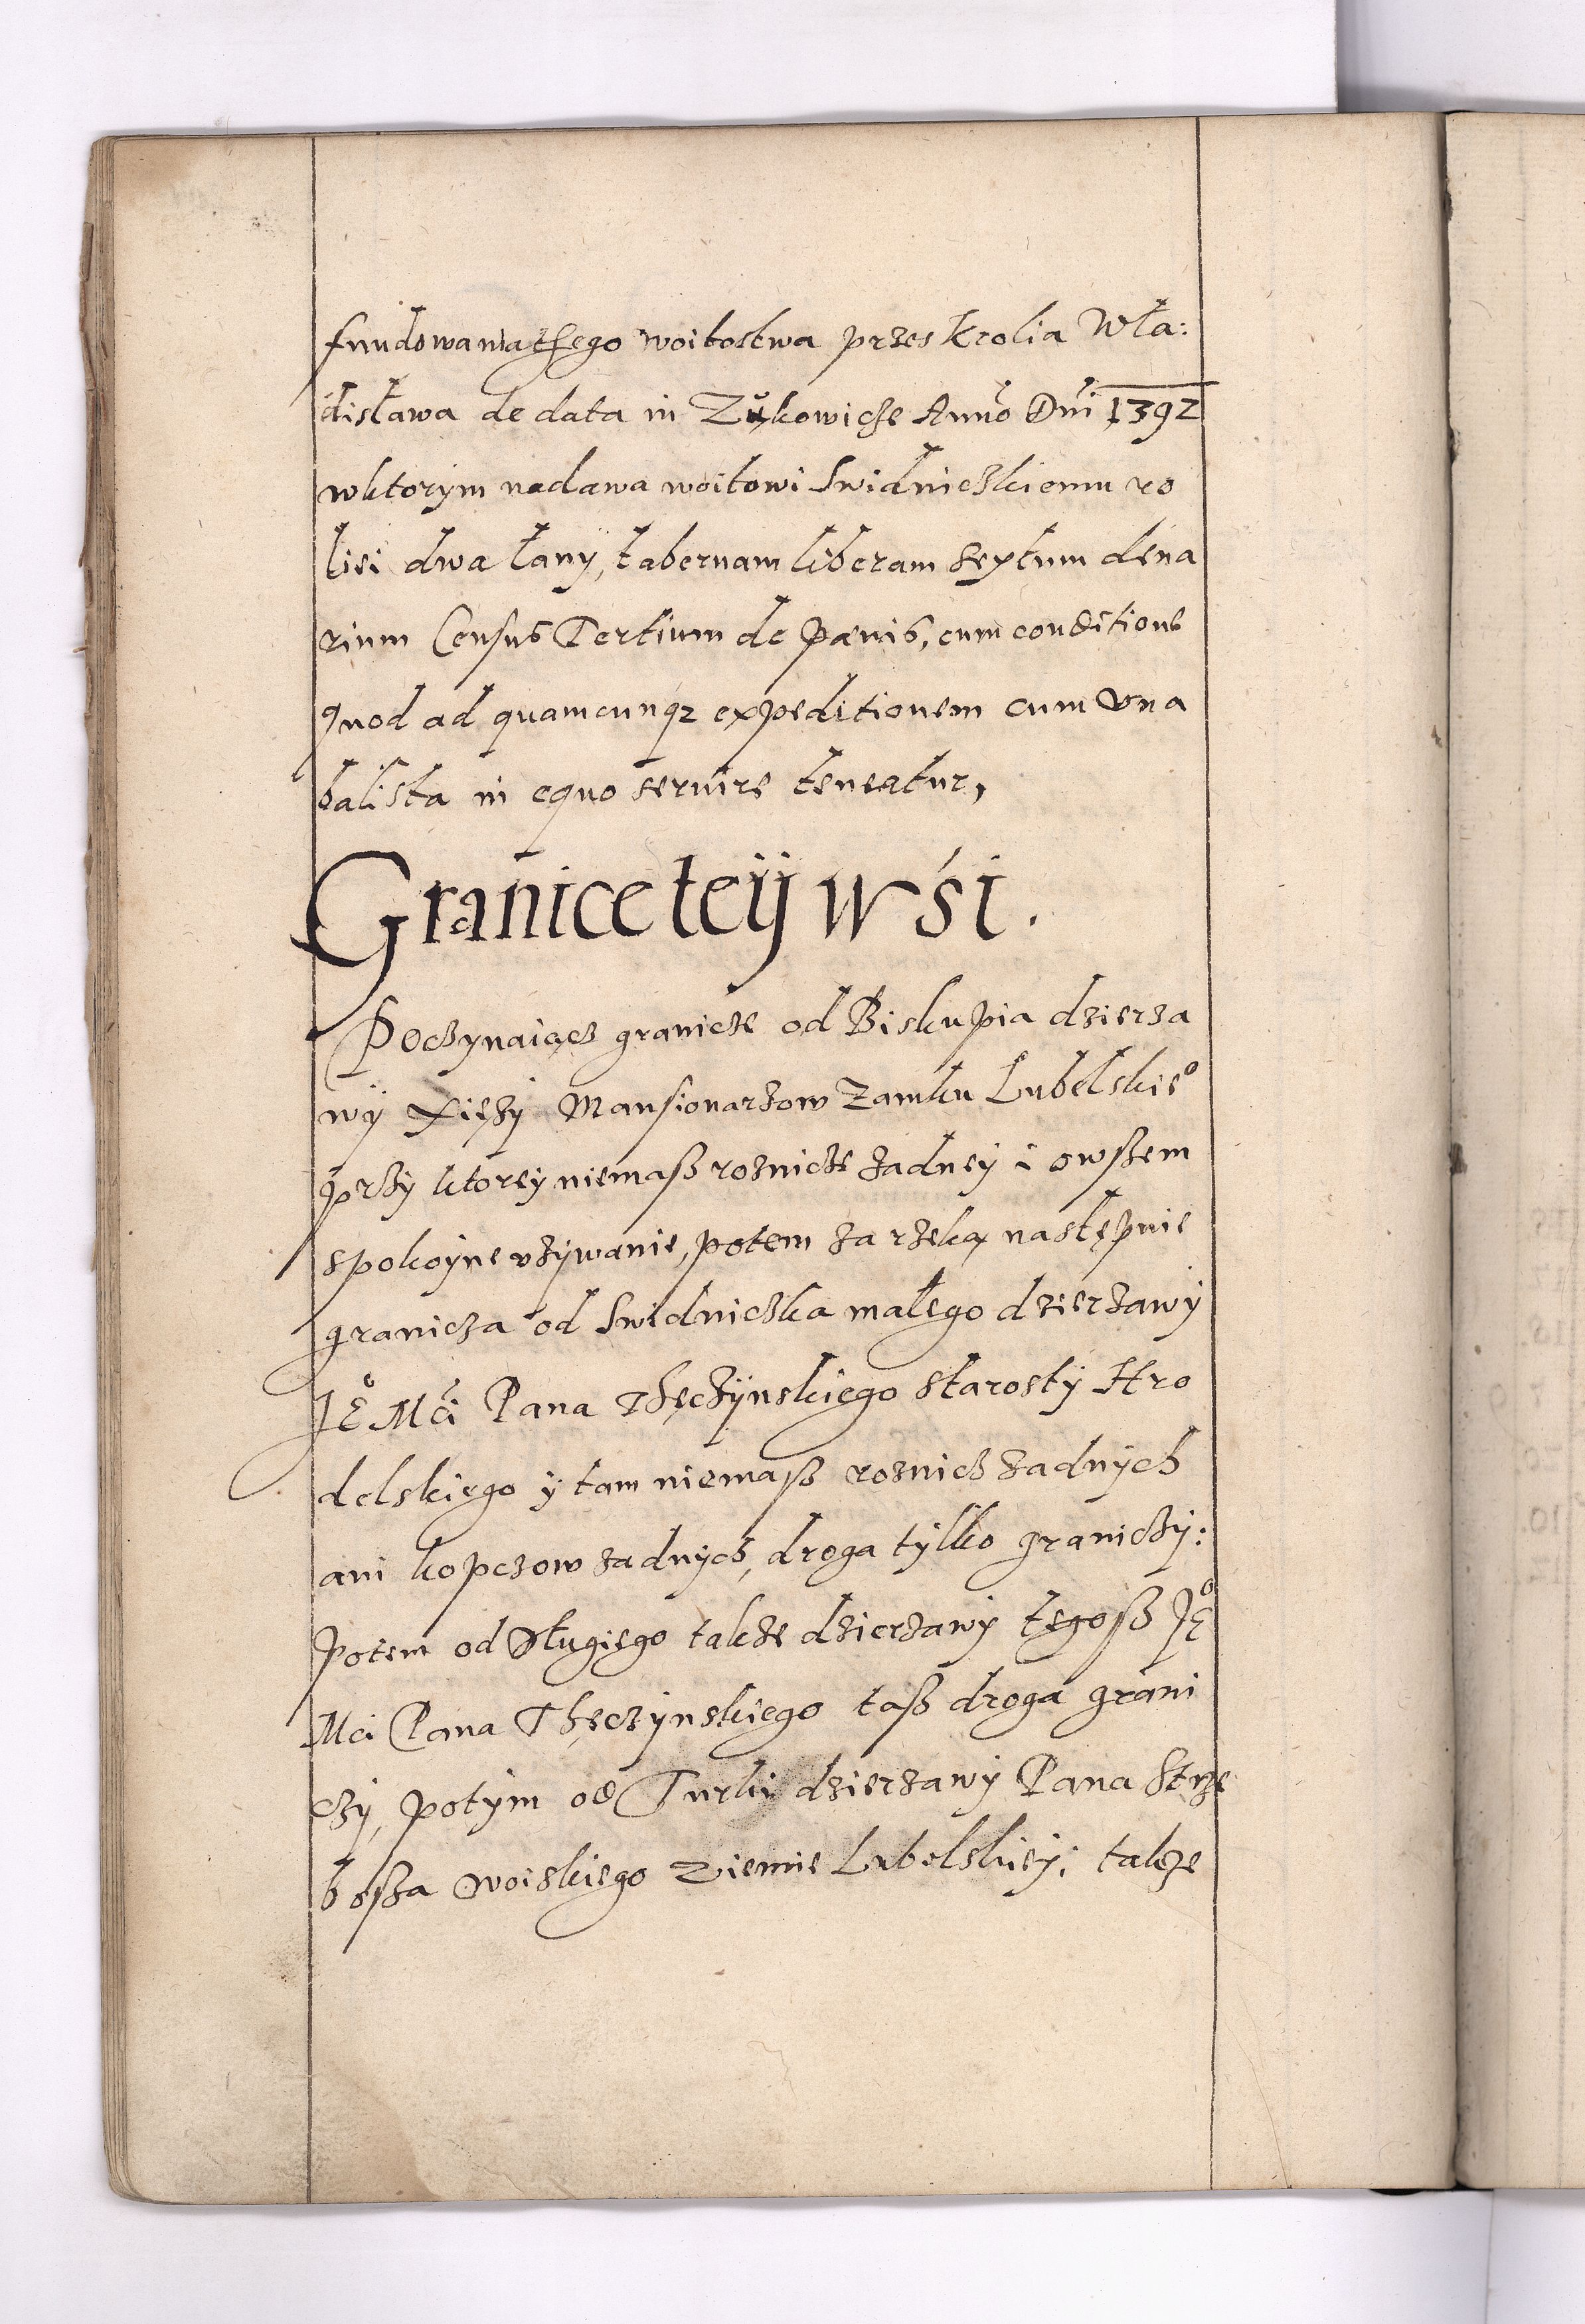 fundowania thego woitostwa przes krolia Wła:
disława de data in Zukowicze Anno Dni 1392
wktorym nadawa woitowi Swidniczkiemu ro
liei dwa łany, tabernam liberam sextum dena
rium Census Tertium de pænis, cum conditione
quod ad quamcunqz expeditionem cum vna
balista in equo seruire teneatur,
Granice teÿ wśi.
Poczynaiącz granicze od Biskupia dzierza
wÿ Xięży Mansionarzow Zamku Lubelskieº
przÿ ktoreÿ niemasz roznicze zadneÿ i owszem
spokoyne vzÿwanie, potem za rzeką następuie
granicza od Swidniczka małego dzierzawÿ
Jeº Mći Pana Thęczÿnskiego Starostÿ Hro
delskiego ÿ tam niemasz roznicz zadnÿch
ani kopczow zadnÿch, droga tÿlko graniczÿ:
Potem od Długiego takze dzierzawÿ tegosz Jeº
Mci Pana Thęczÿnskiego tasz droga grani
czÿ, potÿm od Turki dzierzawÿ Pana Strze
bosza woiskiego Ziemie Lubelskieÿ; takze